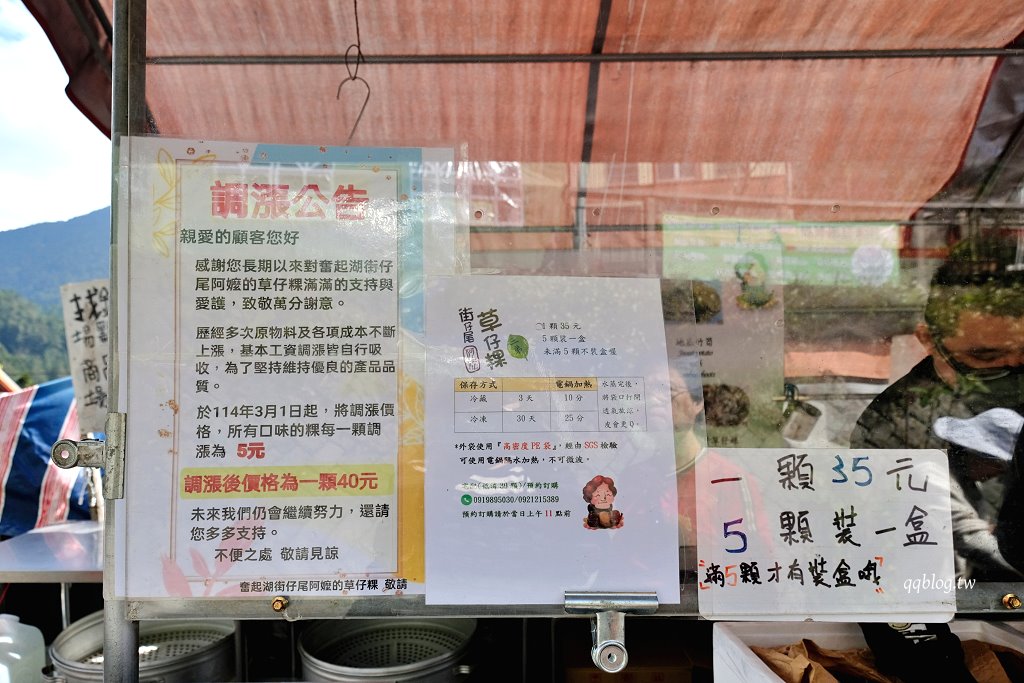 調漲公告
親愛的顧客您好
感謝您長期以來對奮起湖街仔
尾阿嬤的草仔粿滿滿的支持與
愛護，致敬萬分謝意。
歷經多次原物料及各項成本不斷
上漲，基本工資調漲皆自行吸
收，為了堅持維持優良的產品品
質。
於114年3月1日起，將調漲價
格，所有口味的粿每一顆調
漲為 5元
調漲後價格為一顆40元
未來我們仍會繼續努力，還請
您多多支持。
不便之處 敬請見諒
奮起湖街仔尾阿嬤的草仔粿 敬請
街仔尾
草仔粿
1顆 35 元
5 顆裝一盒
未滿 5 顆不裝盒喔
保存方式 電鍋加熱
冷藏 3 天 10 分
冷凍 30 天 25 分
水蒸完後，
將袋口打開
透氣放涼，
皮會更Q。
*外袋使用『高密度 PE 袋』，經由 SGS 檢驗
可使用電鍋隔水加熱，不可微波。
0919895030/0921215389
預約訂購請於當日上午 11 點前
一顆35元
5顆裝一盒
"滿5顆才有裝盒哦"
qqblog.tw